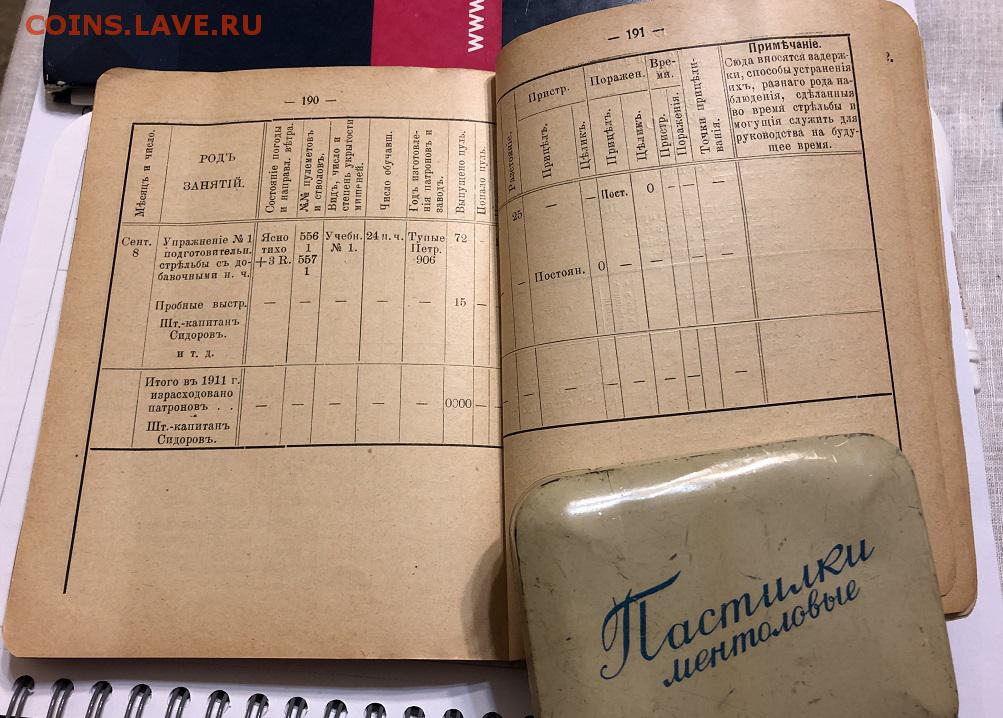 COINS.LAVE.RU
www.
— 190 —
Мѣсяцъ и число.
РОДЪ
ЗАНЯТІЙ.
Состояніе погоды
и направл. вѣтра.
№№ пулеметовъ
и стволовъ.
Видъ, число и
степень укрытости
мишеней.
Число обучавш.
Годъ изготовле-
нія патроновъ и
заводъ.
Выпущено пуль.
Попало пуль.
Сент.
8
Упражненіе № 1
подготовительн.
стрѣльбы съ до-
бавочными н. ч.
Ясно
тихо
+3 R.
556
1
557
1
Учебн.
№ 1.
24 н. ч.
Тупые
Петр.
906
72
—
Пробные выстр.
— — — — — 15 —
Шт.-капитанъ
Сидоровъ.
и т. д.
Итого въ 1911 г.
израсходовано
патроновъ . .
— — — — — 0000 — —
Шт.-капитанъ
Сидоровъ.
— 191 —
Разстояніе.
Пристр.
Прицѣлъ.
Цѣликъ.
Поражен.
Прицѣлъ.
Цѣликъ.
Вре-
мя.
Пристр.
Пораженія.
Точки прицѣли-
ванія.
Примѣчаніе.
Сюда вносятся задерж-
ки, способы устраненія
ихъ, разнаго рода на-
блюденія, сдѣланныя
во время стрѣльбы и
могущія служить для
руководства на буду-
щее время.
25 — — Пост. 0 — — —
— Постоян. 0 — — — — —
— — — — — — — —
Пастилки
ментоловые